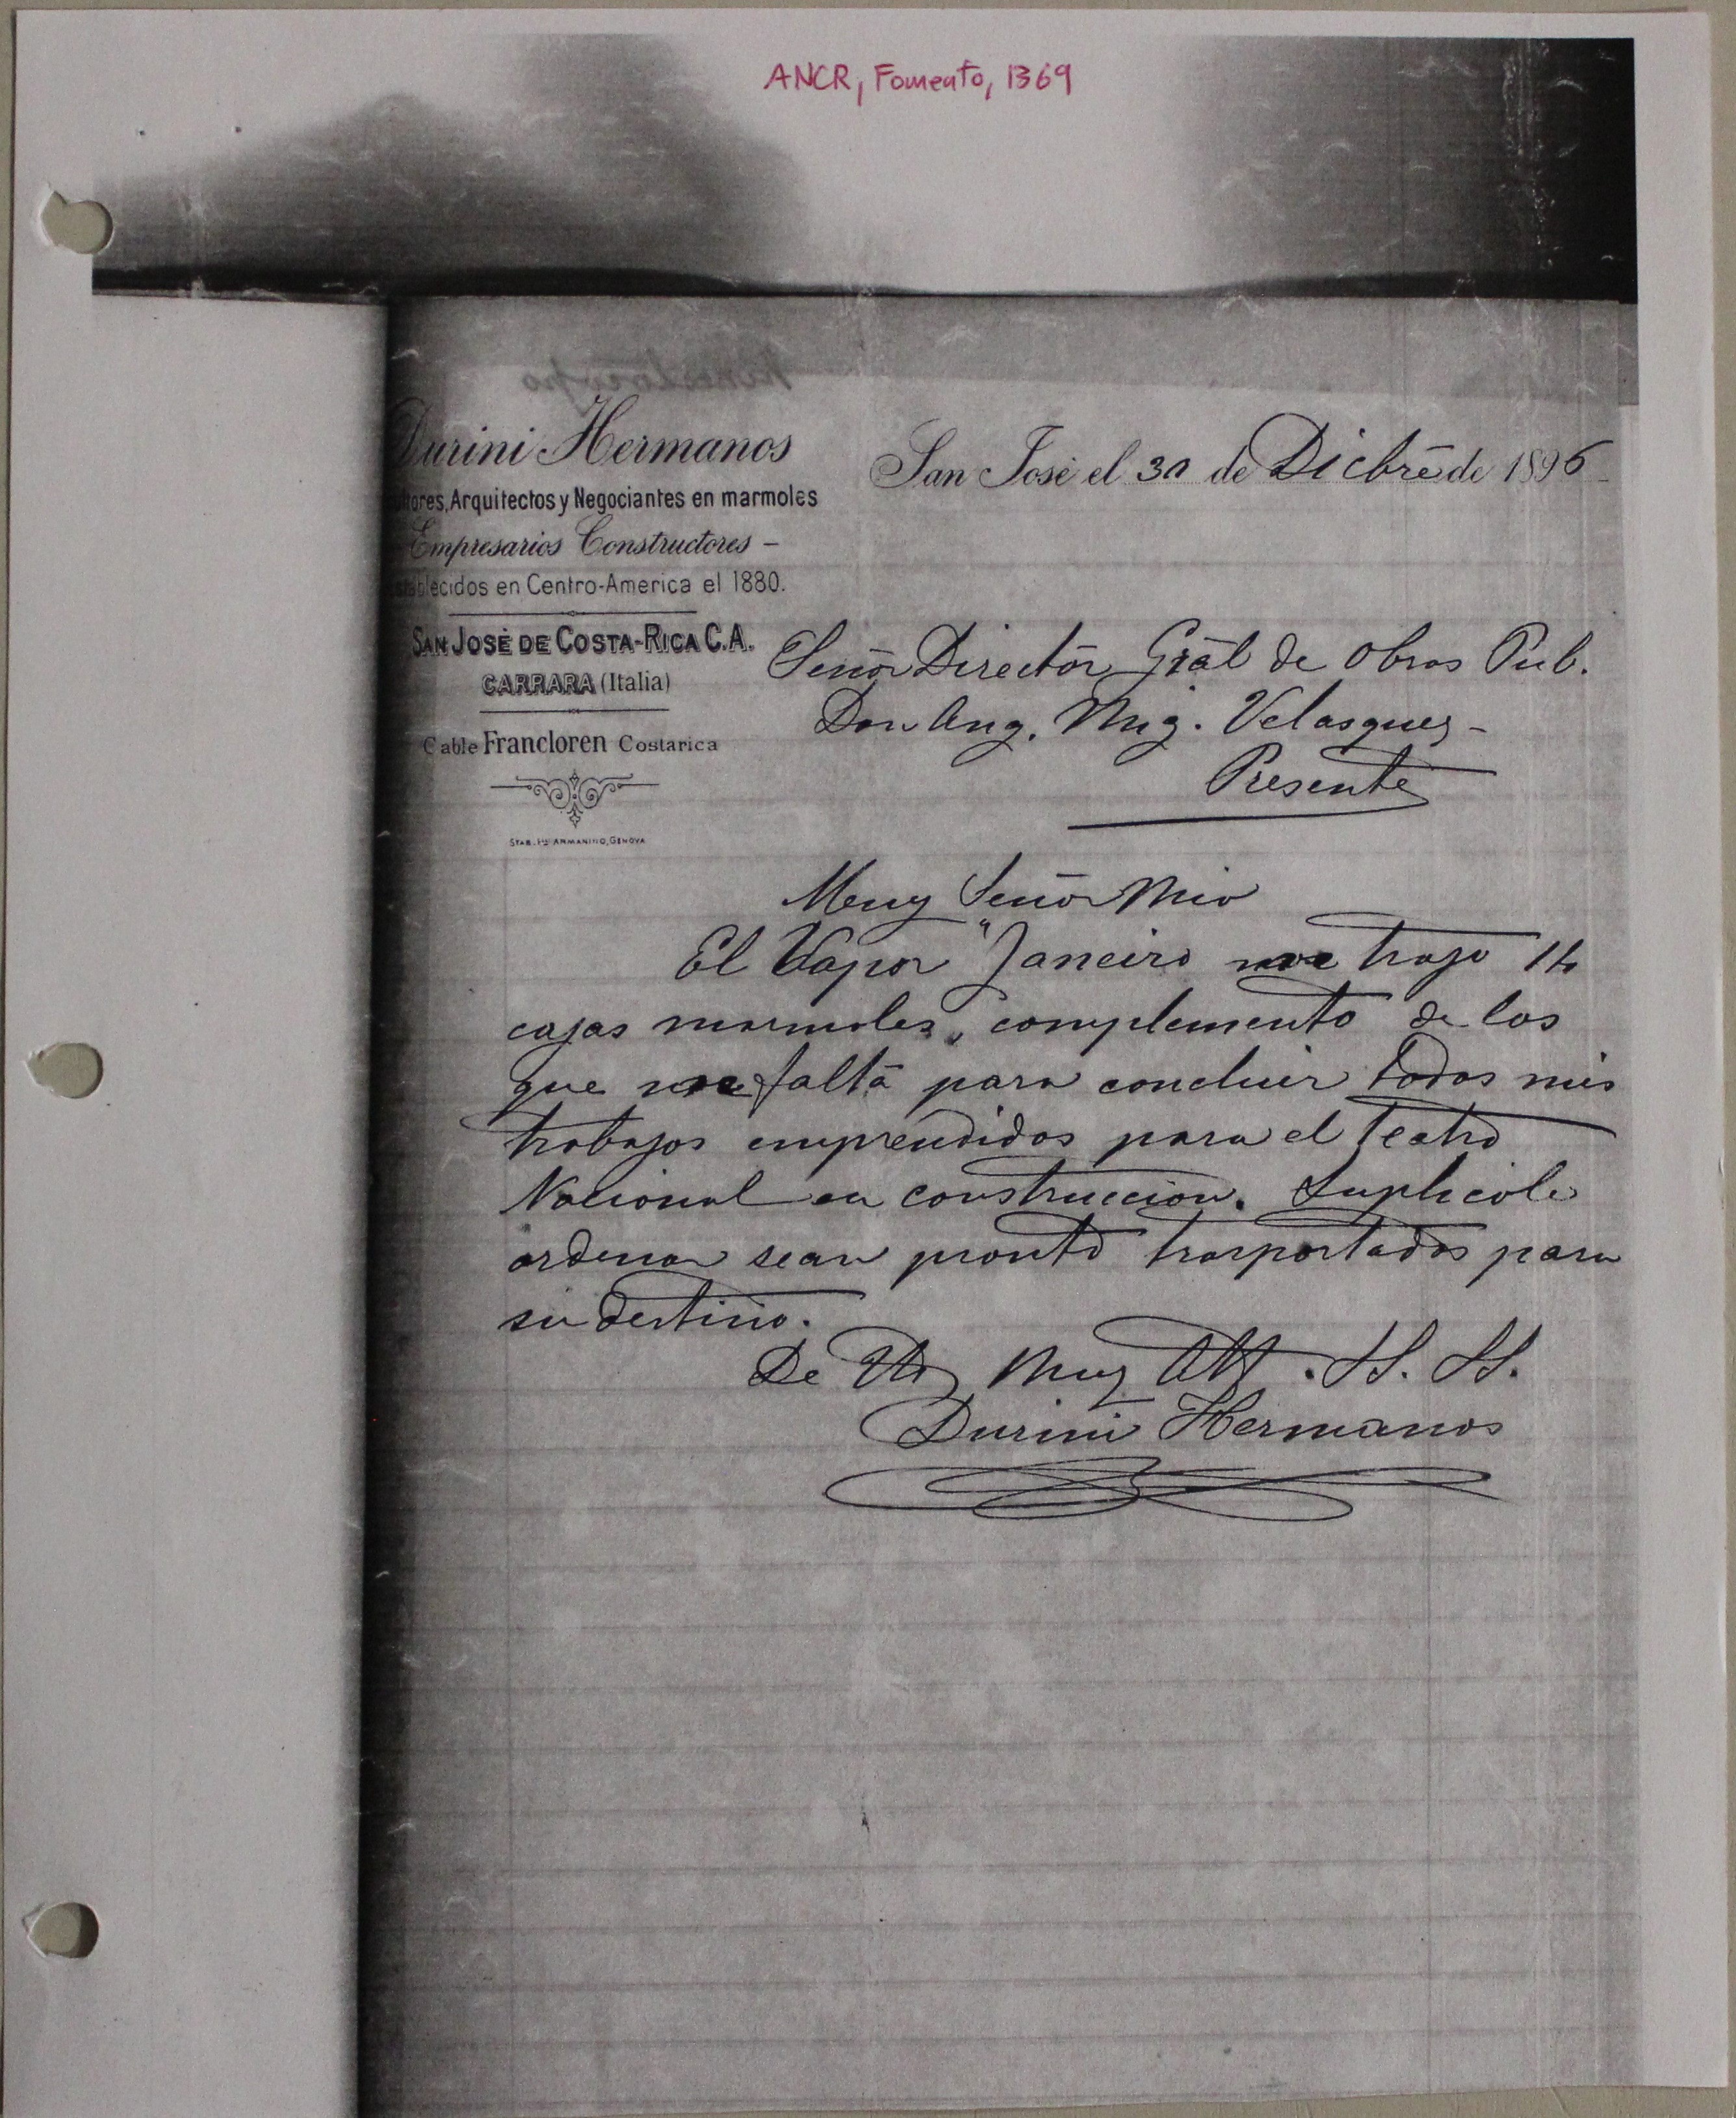 ANCR, Fomento, 1369
Durini Hermanos
ultores, Arquitectos y Negociantes en marmoles
Empresarios Constructores -
stablecidos en Centro-America el 1880.
SAN JOSÉ DE COSTA-RICA C.A.
CARRARA (Italia)
Cable Francloren Costarica
STAB. ARMANINO, GENOVA
San José el 30 de Dicbrē de 1896
Señor Directōr Grāl de Obras Pub.
Don Ang. Mig. Velasquez -
Presente
Muy Señor Mio
El Vapor "Janeiro me trajo 14
cajas marmoles, complemento de los
que me falta para concluir todos mis
trabajos emprendidos para el Teatro
Nacional en construccion. Suplicole
ordenar sean pronto trasportados para
su destino.
De Ud Muy Att. S. S.
Durini Hermanos